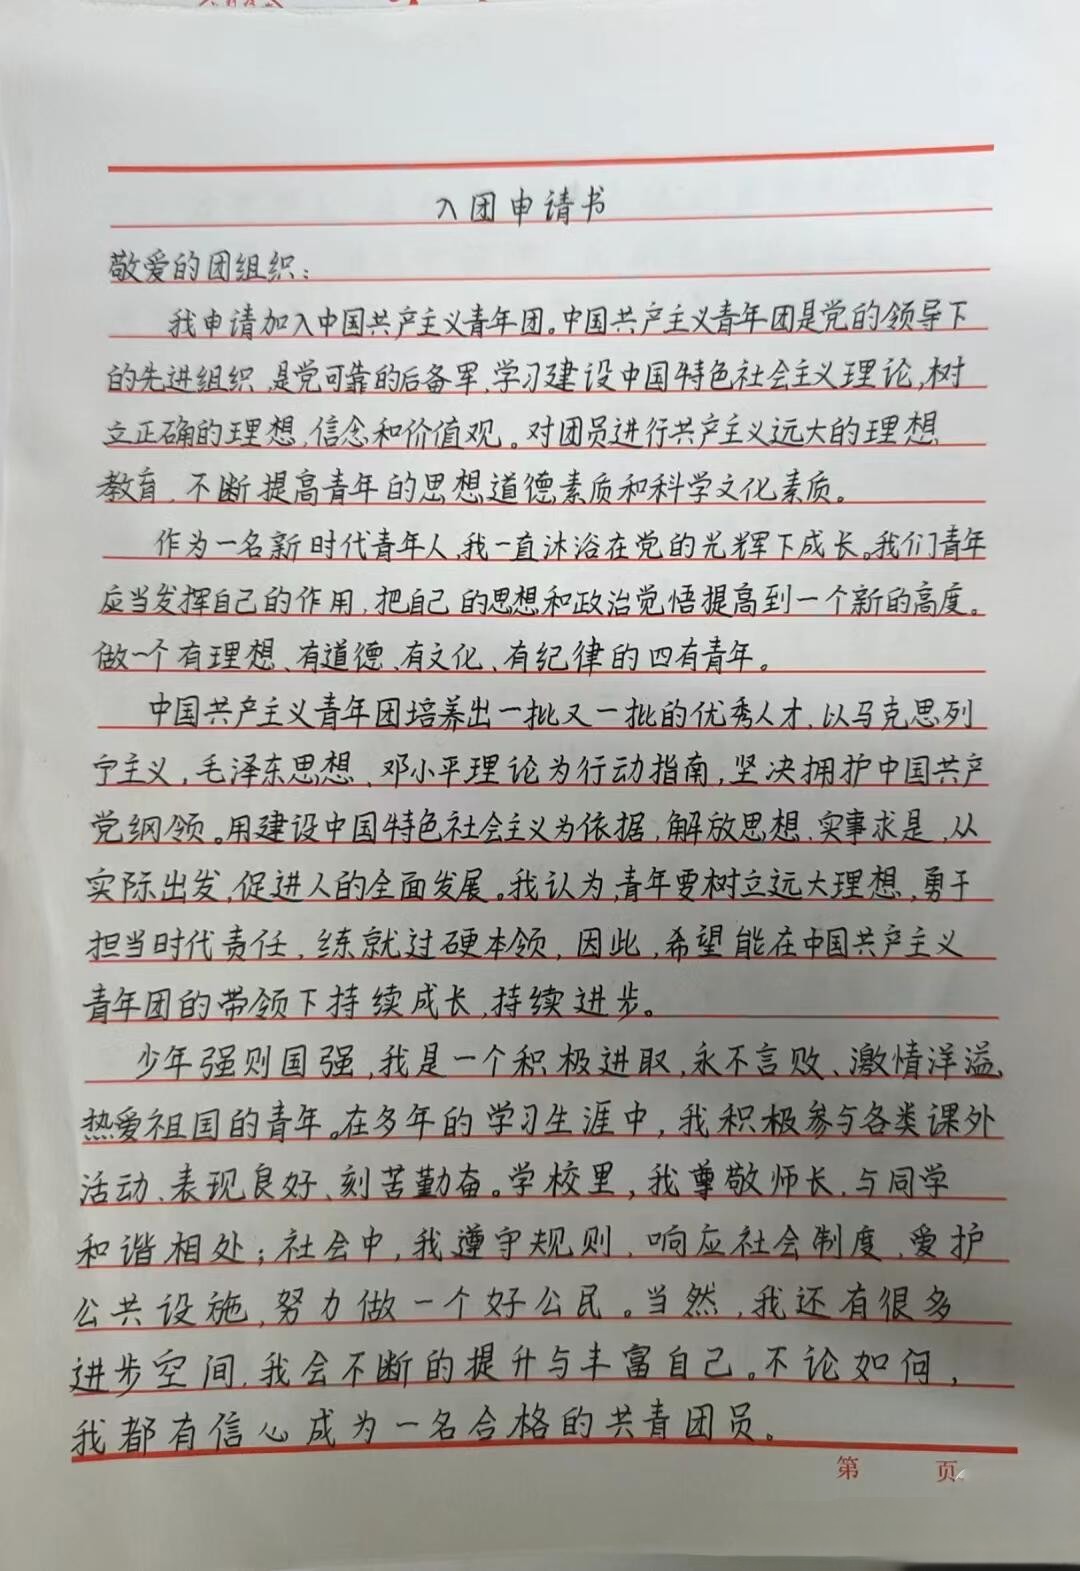 入团申请书
敬爱的团组织：
我申请加入中国共产主义青年团。中国共产主义青年团是党的领导下
的先进组织，是党可靠的后备军，学习建设中国特色社会主义理论，树
立正确的理想，信念和价值观。对团员进行共产主义远大的理想
教育，不断提高青年的思想道德素质和科学文化素质。
作为一名新时代青年人，我一直沐浴在党的光辉下成长。我们青年
应当发挥自己的作用，把自己的思想和政治觉悟提高到一个新的高度。
做一个有理想、有道德、有文化、有纪律的四有青年。
中国共产主义青年团培养出一批又一批的优秀人才，以马克思列
宁主义，毛泽东思想、邓小平理论为行动指南，坚决拥护中国共产
党纲领。用建设中国特色社会主义为依据，解放思想，实事求是，从
实际出发，促进人的全面发展。我认为，青年要树立远大理想，勇于
担当时代责任，练就过硬本领，因此，希望能在中国共产主义
青年团的带领下持续成长，持续进步。
少年强则国强，我是一个积极进取，永不言败、激情洋溢、
热爱祖国的青年。在多年的学习生涯中，我积极参与各类课外
活动、表现良好、刻苦勤奋。学校里，我尊敬师长，与同学
和谐相处；社会中，我遵守规则，响应社会制度，爱护
公共设施，努力做一个好公民。当然，我还有很多
进步空间，我会不断的提升与丰富自己。不论如何，
我都有信心成为一名合格的共青团员。
第 页